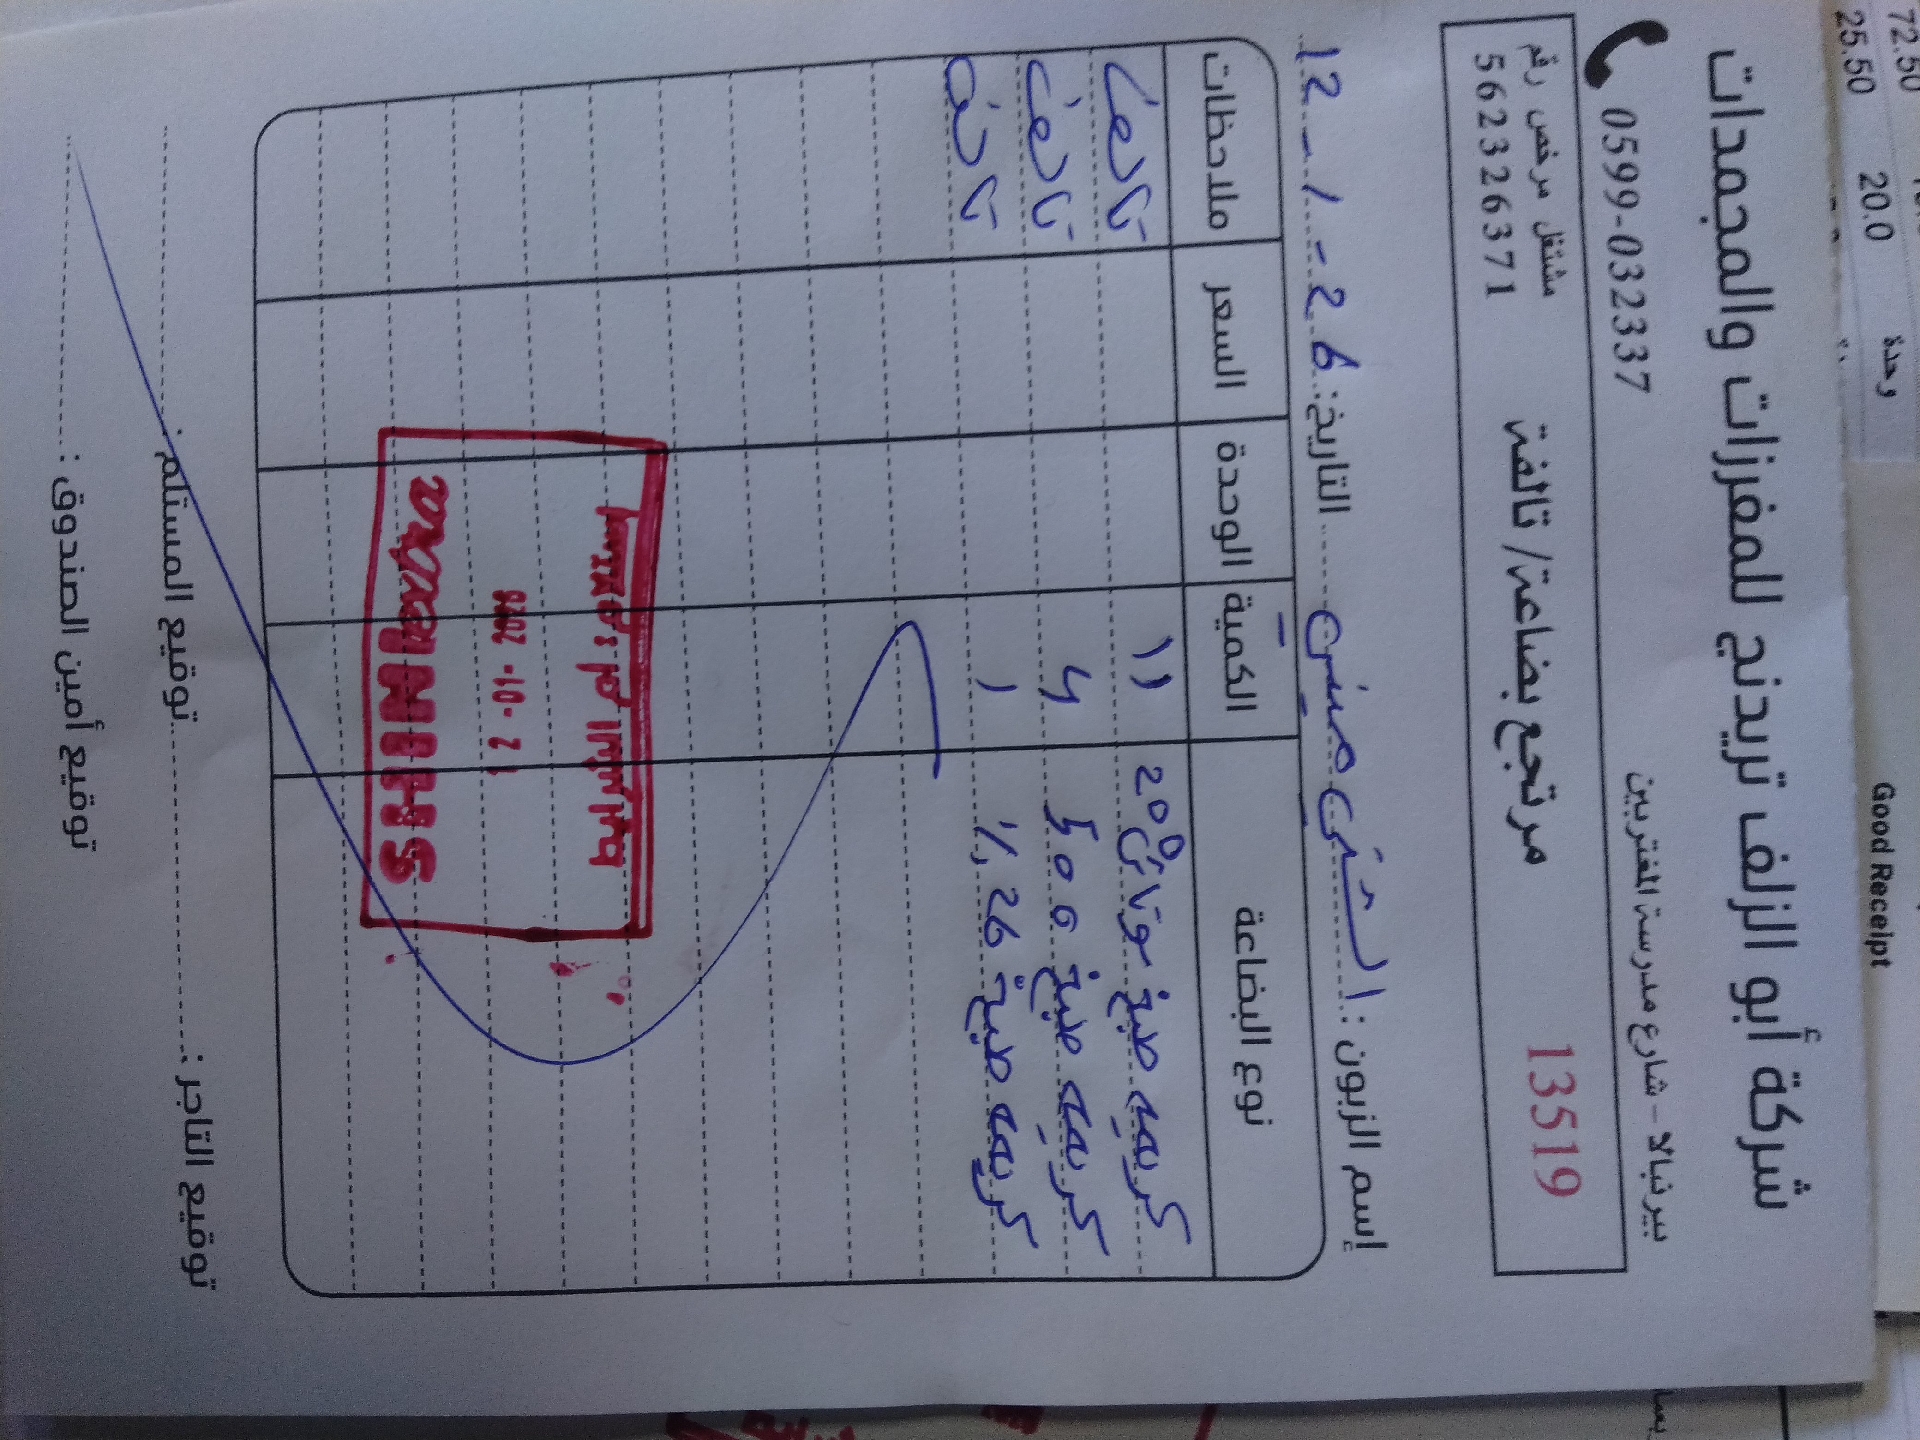 شركة أبو الزلف تريدنج للمفرزات والمجمدات
0599-032337
بيرنبالا - شارع مدرسة المغتربين
مشتغل مرخص رقم
562326371
مرتجع بضاعة/ تالفة
13519
إسم الزبون :
التاريخ: 12-1-26
نوع البضاعة الكمية الوحدة السعر ملاحظات
كريمه طبخ 200 11 تالف
كريمه طبخ 500 4 تالف
كريمه طبخ 26% 1 تالف
2026 -01- 12
توقيع التاجر :
توقيع المستلم :
توقيع أمين الصندوق :
Good Receipt
72.50
25.50 20.0 وحدة